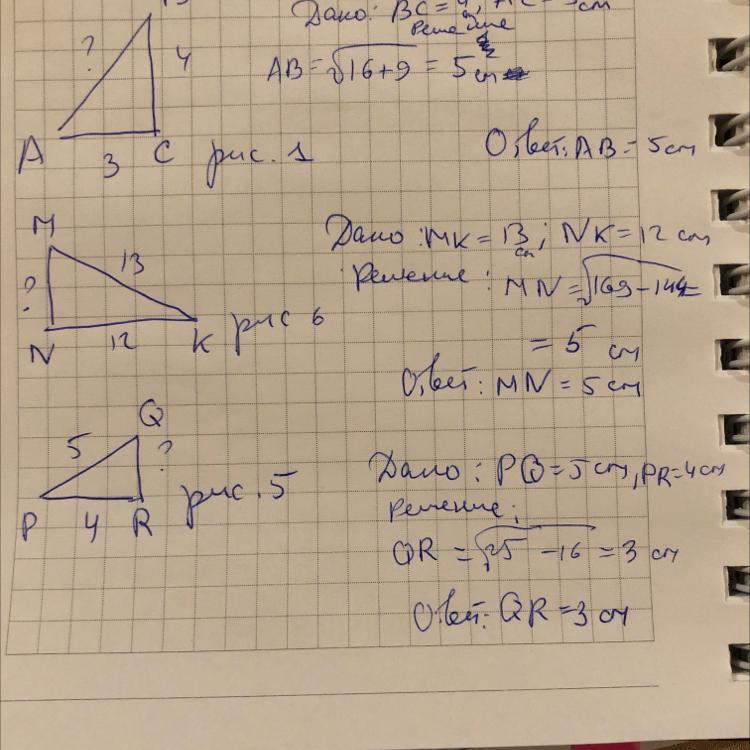 Дано: BC = 4, AC = 3 см
Решение
?
4
AB = √16+9 = 5 см
A
3
C
рис. 1
Ответ: AB = 5 см
M
13
?
N
12
K
рис 6
Дано: MK = 13 см; NK = 12 см
Решение: MN = √169-144 =
= 5 см
Ответ: MN = 5 см
Q
5
?
P
4
R
рис. 5
Дано: PQ = 5 см, PR = 4 см
Решение:
QR = √25 - 16 = 3 см
Ответ: QR = 3 см